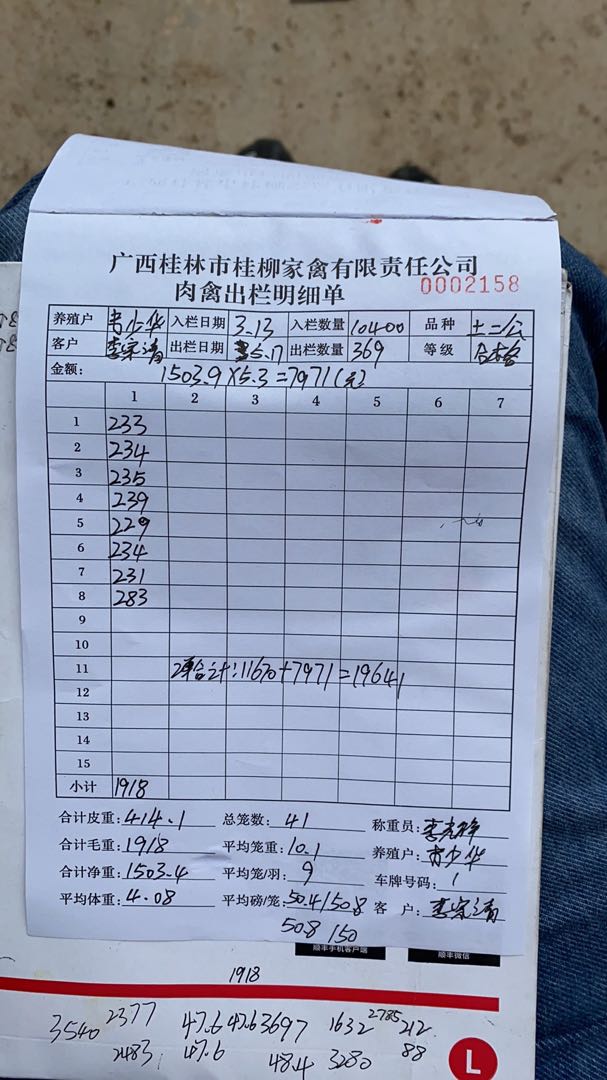 广西桂林市桂柳家禽有限责任公司
肉禽出栏明细单 0002158
养殖户 入栏日期 3.13 入栏数量 10400 品种 土二公
客户 李宗清 出栏日期 5.17 出栏数量 369 等级 合格
金额: 1503.9×5.3=7971(元)
1 2 3 4 5 6 7
1 233
2 234
3 235
4 239
5 229
6 234
7 231
8 283
9
10
11 2单合计:11670+7971=19641
12
13
14
15
小计 1918
合计皮重: 414.1 总笼数: 41 称重员:
合计毛重: 1918 平均笼重: 10.1 养殖户:
合计净重: 1503.4 平均笼/羽: 9 车牌号码: 1
平均体重: 4.08 平均磅/笼: 50.4/50.8 客 户: 李宗清
50.8 150
顺丰手机客户端 顺丰微信
1918
3540 2377 47.6 47.6 3697 1632 2785 212
2483 47.6 48.4 3280 88
L